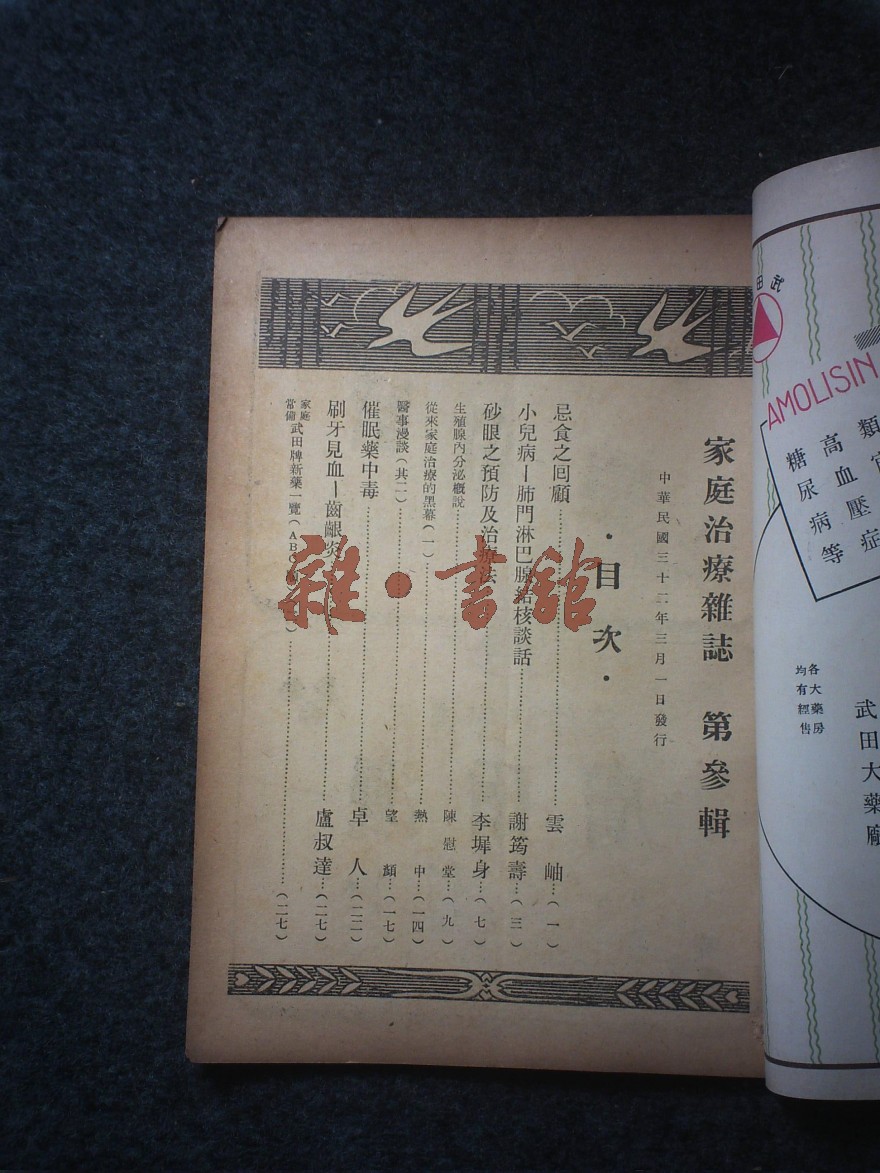 家庭治療雜誌 第參輯
中華民國三十二年三月一日發行
·目次·
忌食之回顧……雲岫…(一)
小兒病—肺門淋巴腺結核談話……謝筠壽…(三)
砂眼之預防及治療法……李墀身…(七)
生殖腺內分泌概說……陳慰堂…(九)
從來家庭治療的黑幕(一)……熱中…(一四)
醫事漫談(其二)……望顏…(一七)
催眠藥中毒……卓人…(二二)
刷牙見血—齒齦炎……盧叔達…(二七)
家庭常備武田牌新藥一覽(ABC……(二七)
武田
AMOLISIN
類
高血壓症
糖尿病等
各大藥房
均有經售
武田大藥廠
雜·書館